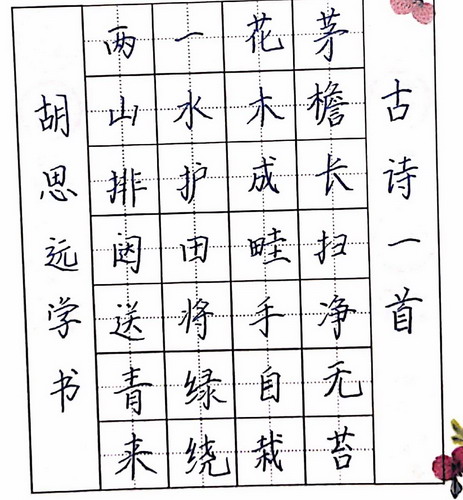 古诗一首
茅檐长扫净无苔
花木成畦手自栽
一水护田将绿绕
两山排闼送青来
胡思远学书